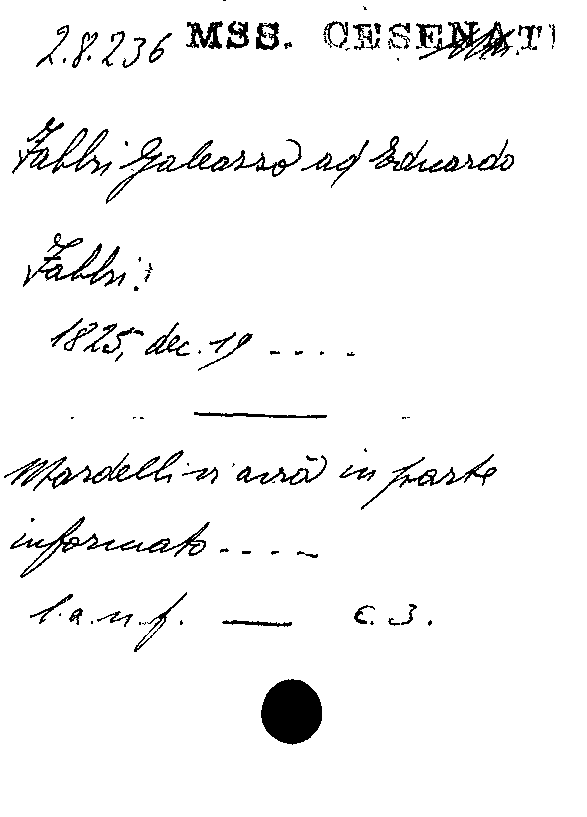 2.8.236 MSS. CESENATI
Fabbri Galeazzo ad Eduardo
Fabbri:
1825, dec. 19 ....
Mardelli vi avrà in parte
informato ....
l.a.n.f. — c. 3.